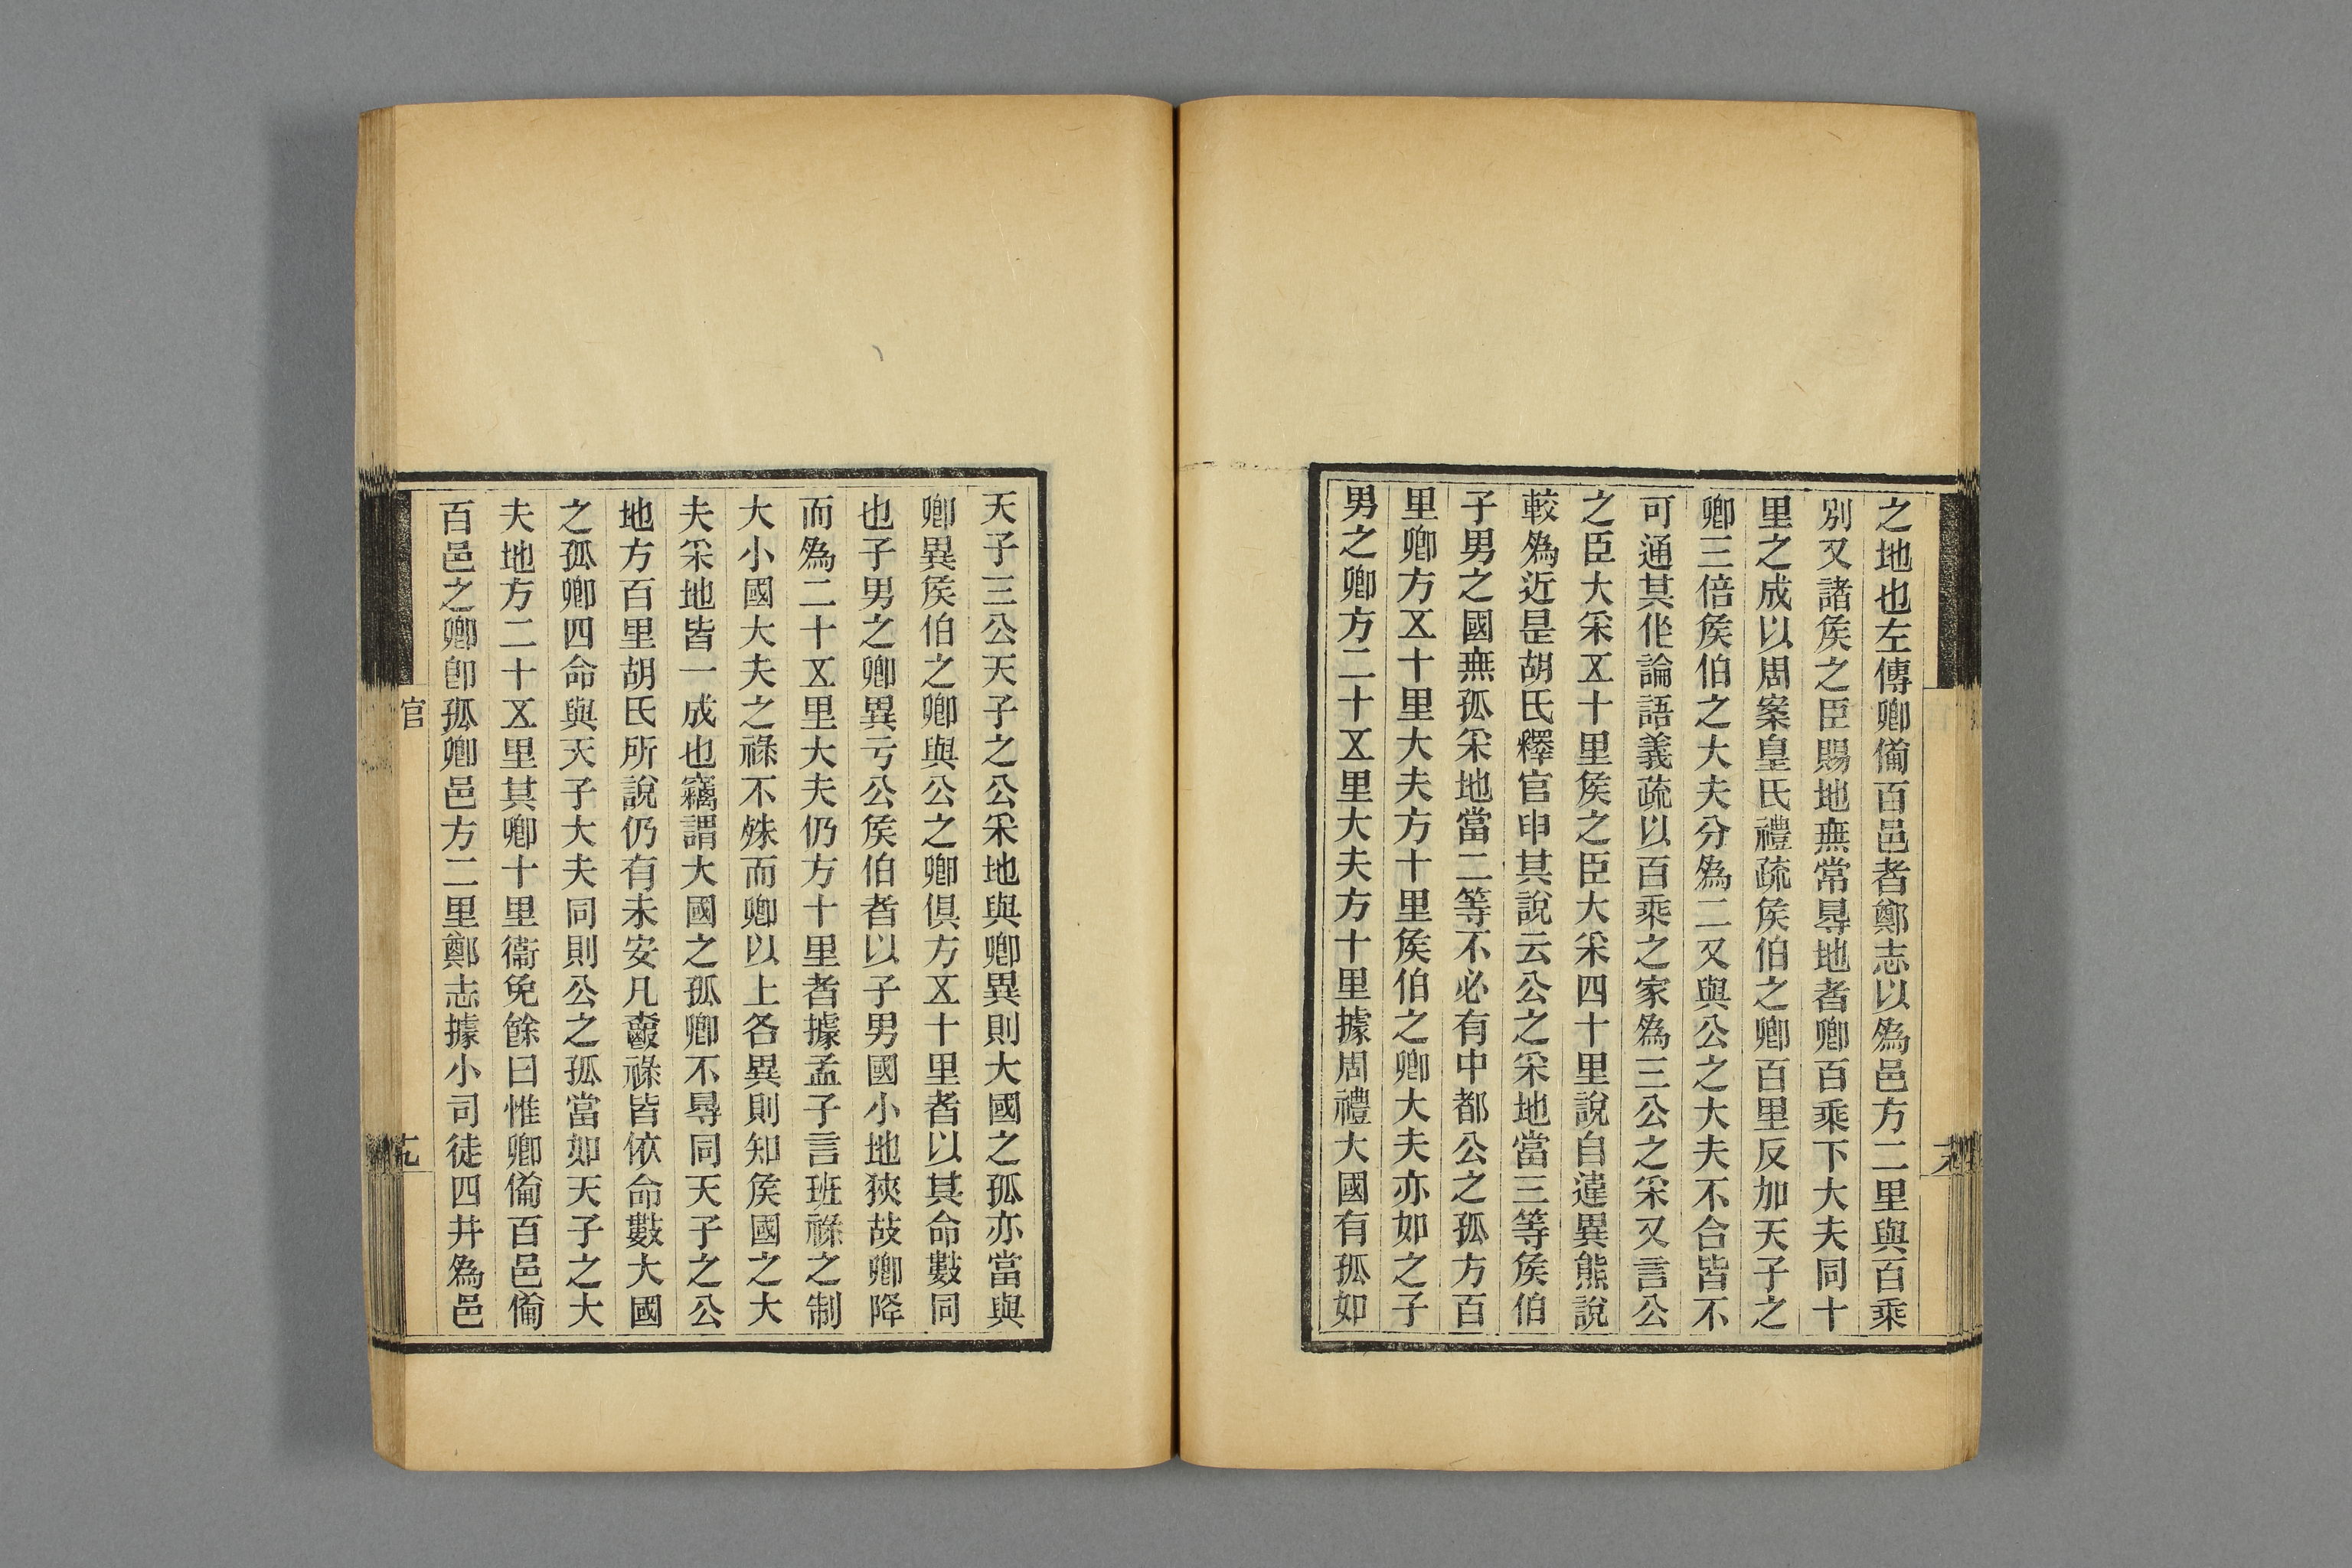 之地也左傳卿備百邑者鄭志以爲邑方二里與百乘
別又諸矦之臣賜地無常㝵地者卿百乘下大夫同十
里之成以周案皇氏禮疏矦伯之卿百里反加天子之
卿三倍矦伯之大夫分爲二又與公之大夫不合皆不
可通其佗論語義疏以百乘之家爲三公之采又言公
之臣大采㐅十里矦之臣大采四十里說自違異熊說
較爲近是胡氏釋官申其說云公之采地當三等矦伯
子男之國無孤采地當二等不必有中都公之孤方百
里卿方㐅十里大夫方十里矦伯之卿大夫亦如之子
男之卿方二十㐅里大夫方十里據周禮大國有孤如
天子三公天子之公采地與卿異則大國之孤亦當與
卿異矦伯之卿與公之卿俱方㐅十里者以其命數同
也子男之卿異亏公矦伯者以子男國小地狹故卿降
而爲二十㐅里大夫仍方十里者據孟子言班祿之制
大小國大夫之祿不殊而卿以上各異則知矦國之大
夫采地皆一成也竊謂大國之孤卿不㝵同天子之公
地方百里胡氏所說仍有未安凡𤔲祿皆依命數大國
之孤卿四命與天子大夫同則公之孤當如天子之大
夫地方二十㐅里其卿十里衞免餘曰惟卿備百邑備
百邑之卿卽孤卿邑方二里鄭志據小司徒四井爲邑
官